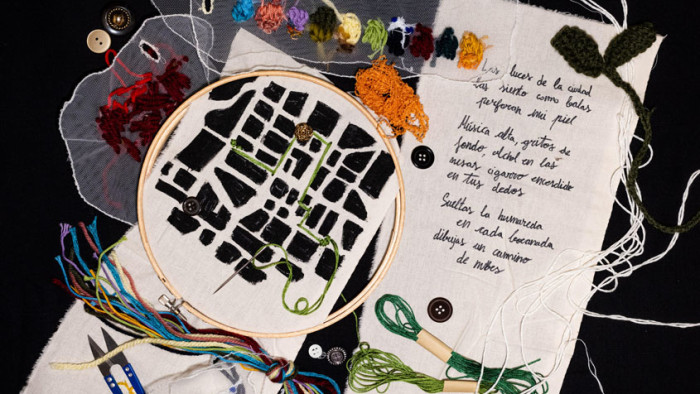 Las luces de la ciudad
las siento como balas
perforan mi piel
Música alta, gritos de
fondo, alchol en las
mesas cigarro encendido
en tus dedos
Sueltas la humareda
en cada bocanada
dibujas un camino
de nubes